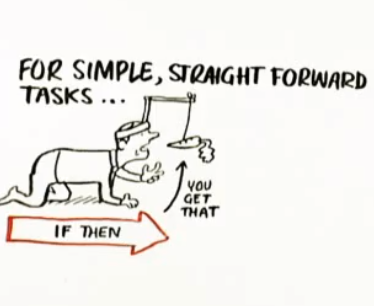 FOR SIMPLE, STRAIGHT FORWARD
TASKS...
YOU
GET
THAT
IF THEN